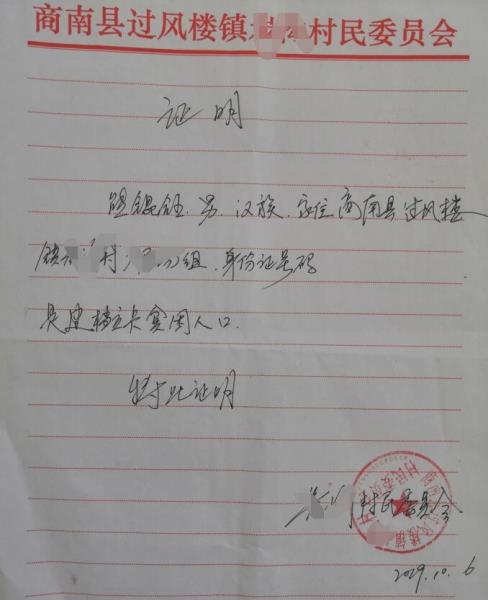 商南县过风楼镇村民委员会
证明
锟钰. 男. 汉族. 家住商南县过风楼
镇村组. 身份证号码
是建档立卡贫困人口.
特此证明
村民委员会
10. 6